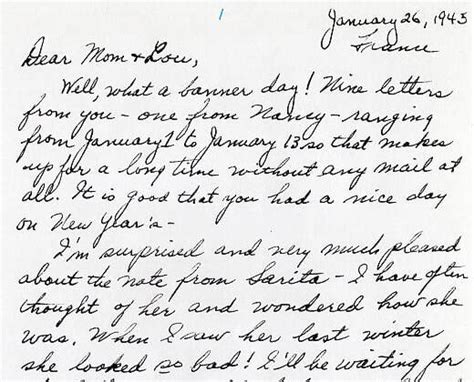 1
January 26, 1945
France
Dear Mom & Lou,
Well, what a banner day! Nine letters
from you - one from Nancy - ranging
from January 1 to January 13 so that makes
up for a long time without any mail at
all. It is good that you had a nice day
on New Year's -
I'm surprised and very much pleased
about the note from Sarita - I have often
thought of her and wondered how she
was. When I saw her last winter
she looked so bad! I'll be waiting for